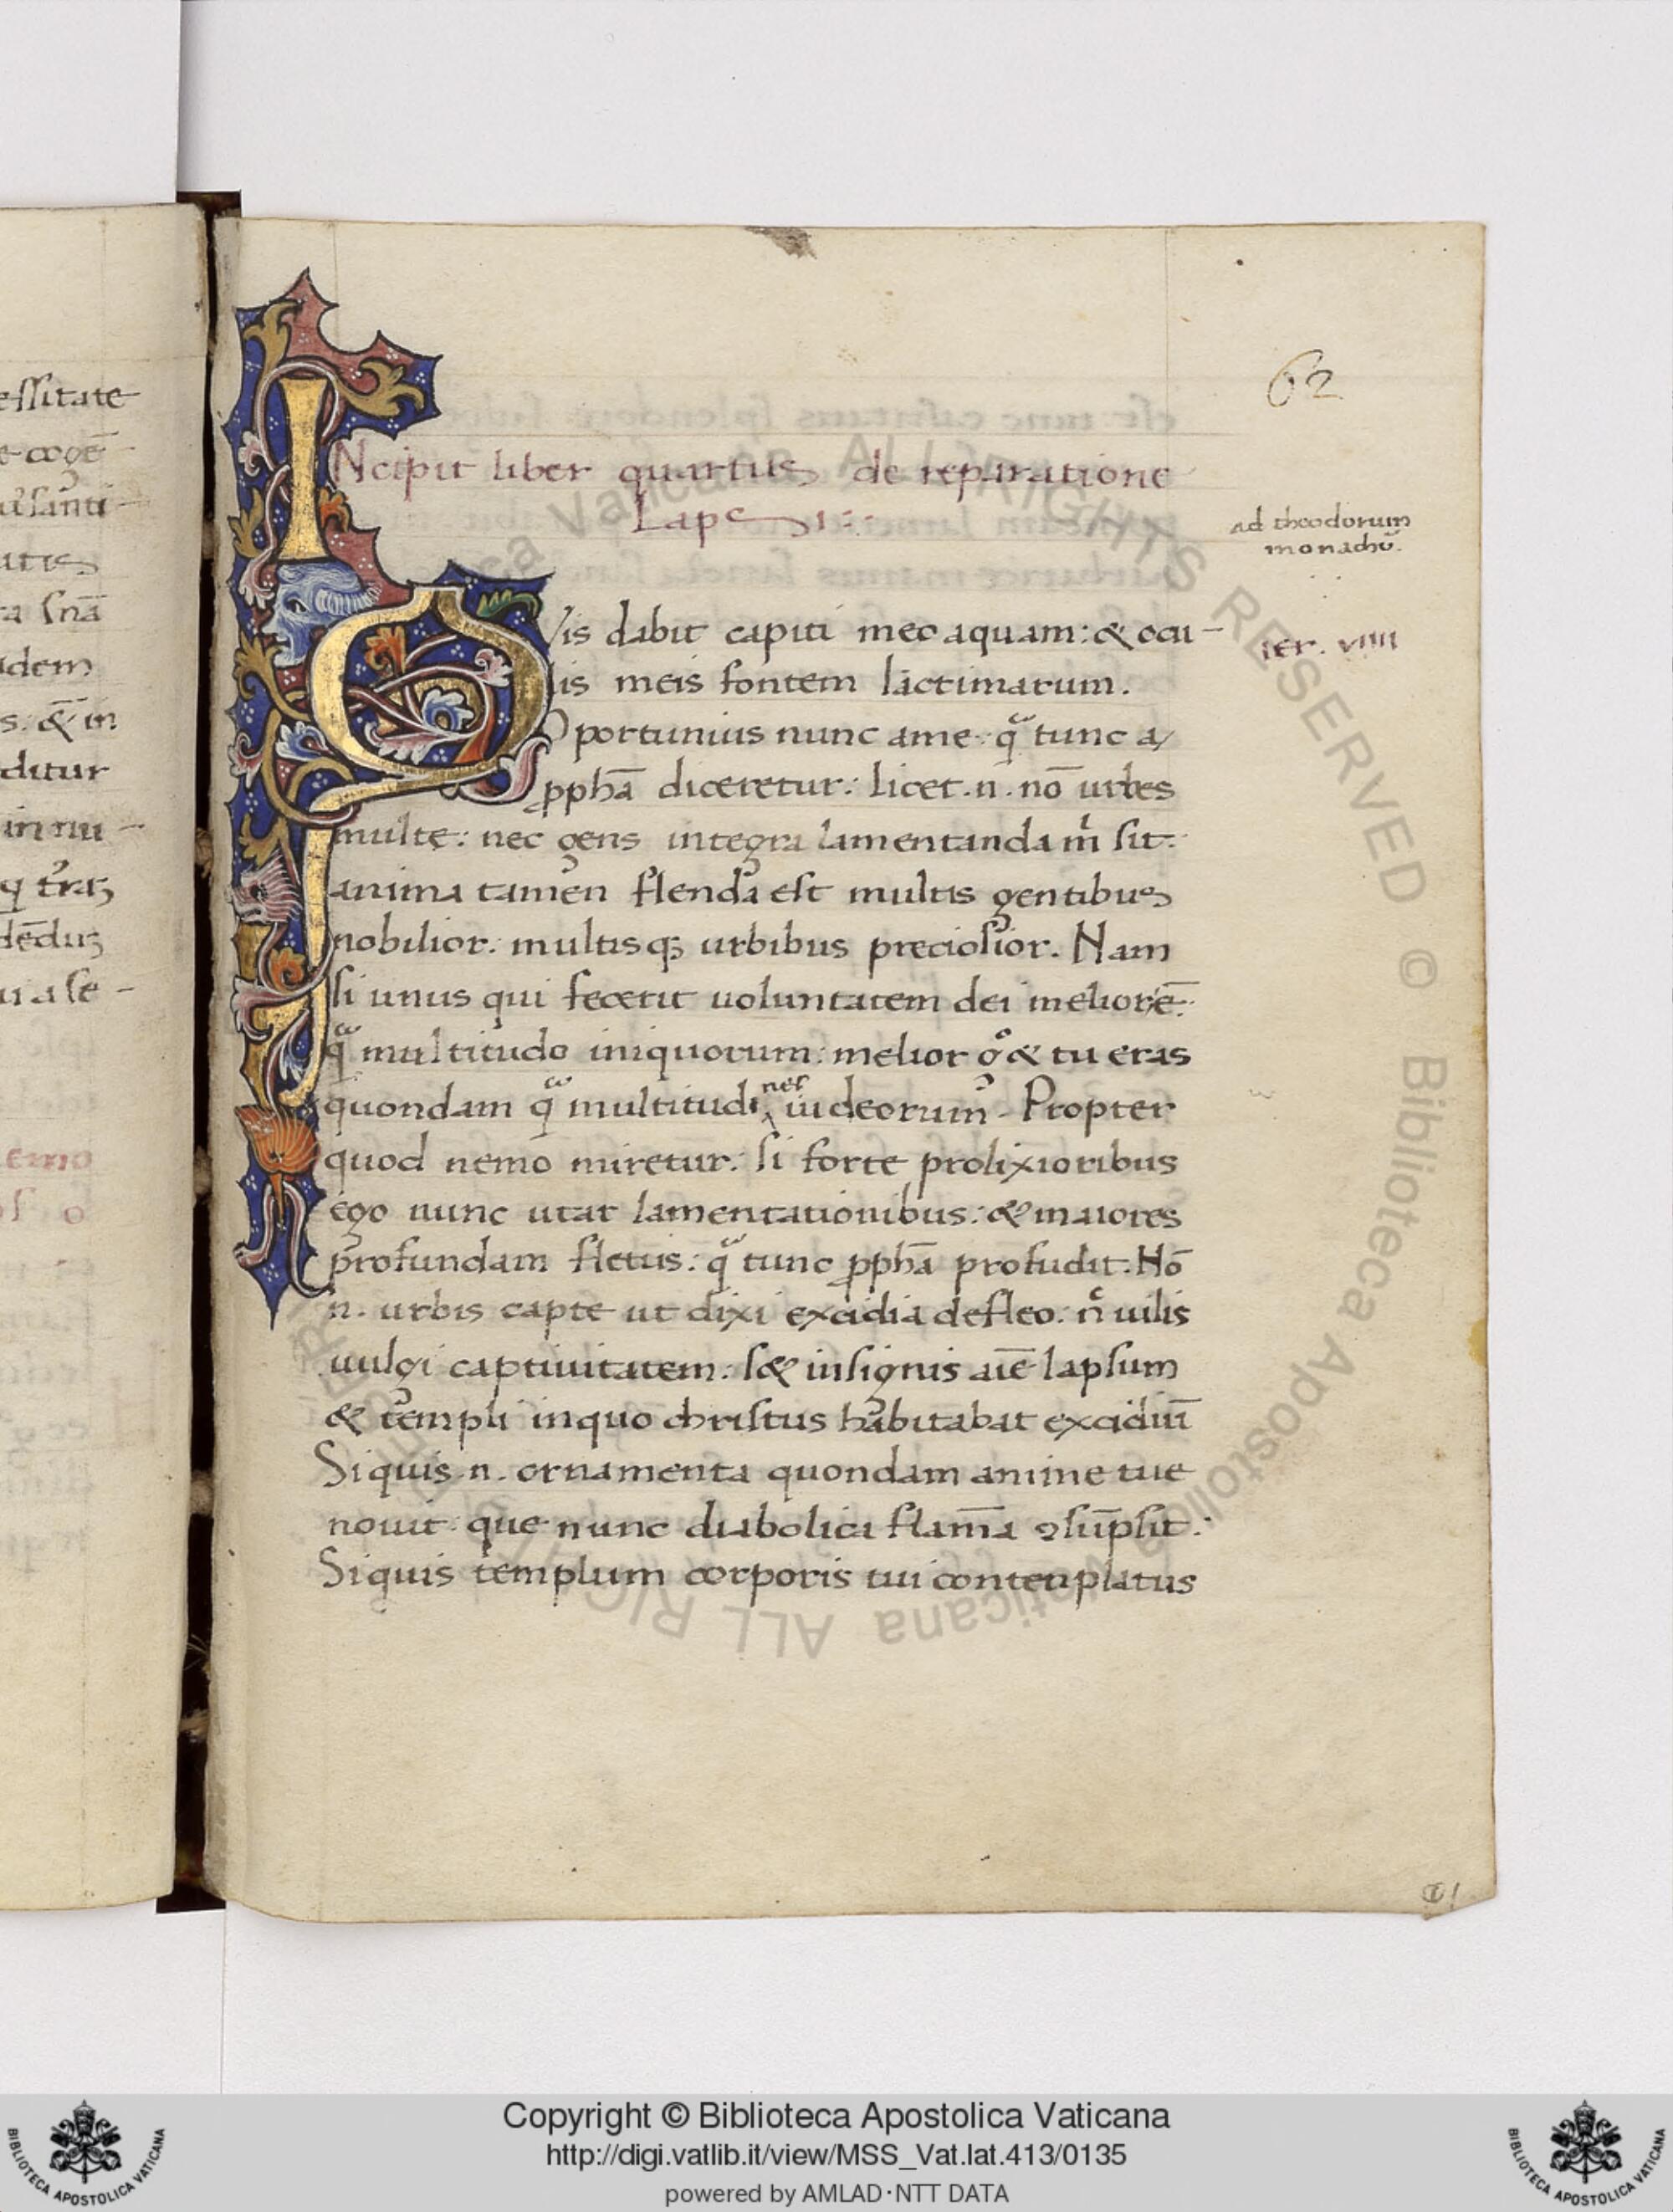 essitate
e cogē
utis
ta sn̄a
idem
s: &̄ in
ditur
in nu-
dēduꝫ
u a se-
62
INcipit liber quartus de reparatione
Lapsi:
ad theodorum
monachū.
QVis dabit capiti meo aquam: & ocu-
ier. viiii
lis meis fontem lacrimarum.
Oportunius nunc a me: qᷓ tunc a/
ꝓpha̅ diceretur: licet .n. nō urbes
multe: nec gens integra lamentanda m̊ sit:
anima tamen flenda est multis gentibus
nobilior: multisqꝫ urbibus preciosior. Nam
si unus qui fecerit uoluntatem dei meliorē:
qᷓ multitudo iniquorum: melior g̊ & tu eras
quondam qᷓ multitudines iudeorum. Propter
quod nemo miretur: si forte prolixioribus
ego nunc utar lamentationibus: & maiores
profundam fletus: qᷓ tunc ꝓpha̅ profudit. Nō
.n. urbis capte ut dixi excidia defleo: n̊ uilis
uulgi captiuitatem: s& insignis aīe lapsum
& templi in quo christus habitabat excidiū
Si quis .n. ornamenta quondam anime tue
nouit: que nunc diabolica flam̄a ꝯsūpsit:
Si quis templum corporis tui contemplatus
61
© Biblioteca Apostolica Vaticana ALL RIGHTS RESERVED
Copyright © Biblioteca Apostolica Vaticana
http://digi.vatlib.it/view/MSS_Vat.lat.413/0135
powered by AMLAD·NTT DATA
BIBLIOTECA APOSTOLICA VATICANA
BIBLIOTECA APOSTOLICA VATICANA